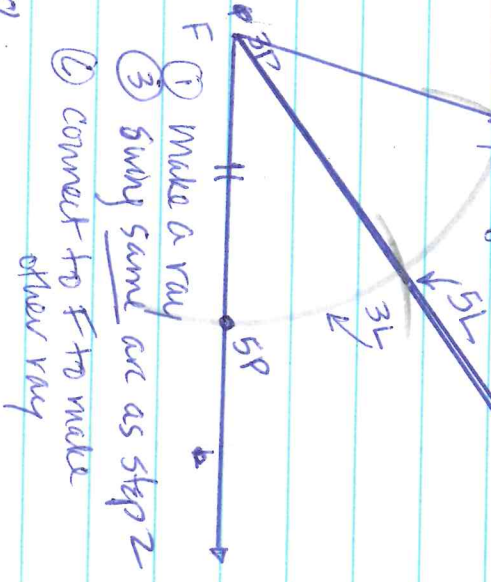 F
3P
5P
3L
5L
① make a ray
③ swing same arc as step 2
⑥ connect to F to make
other ray